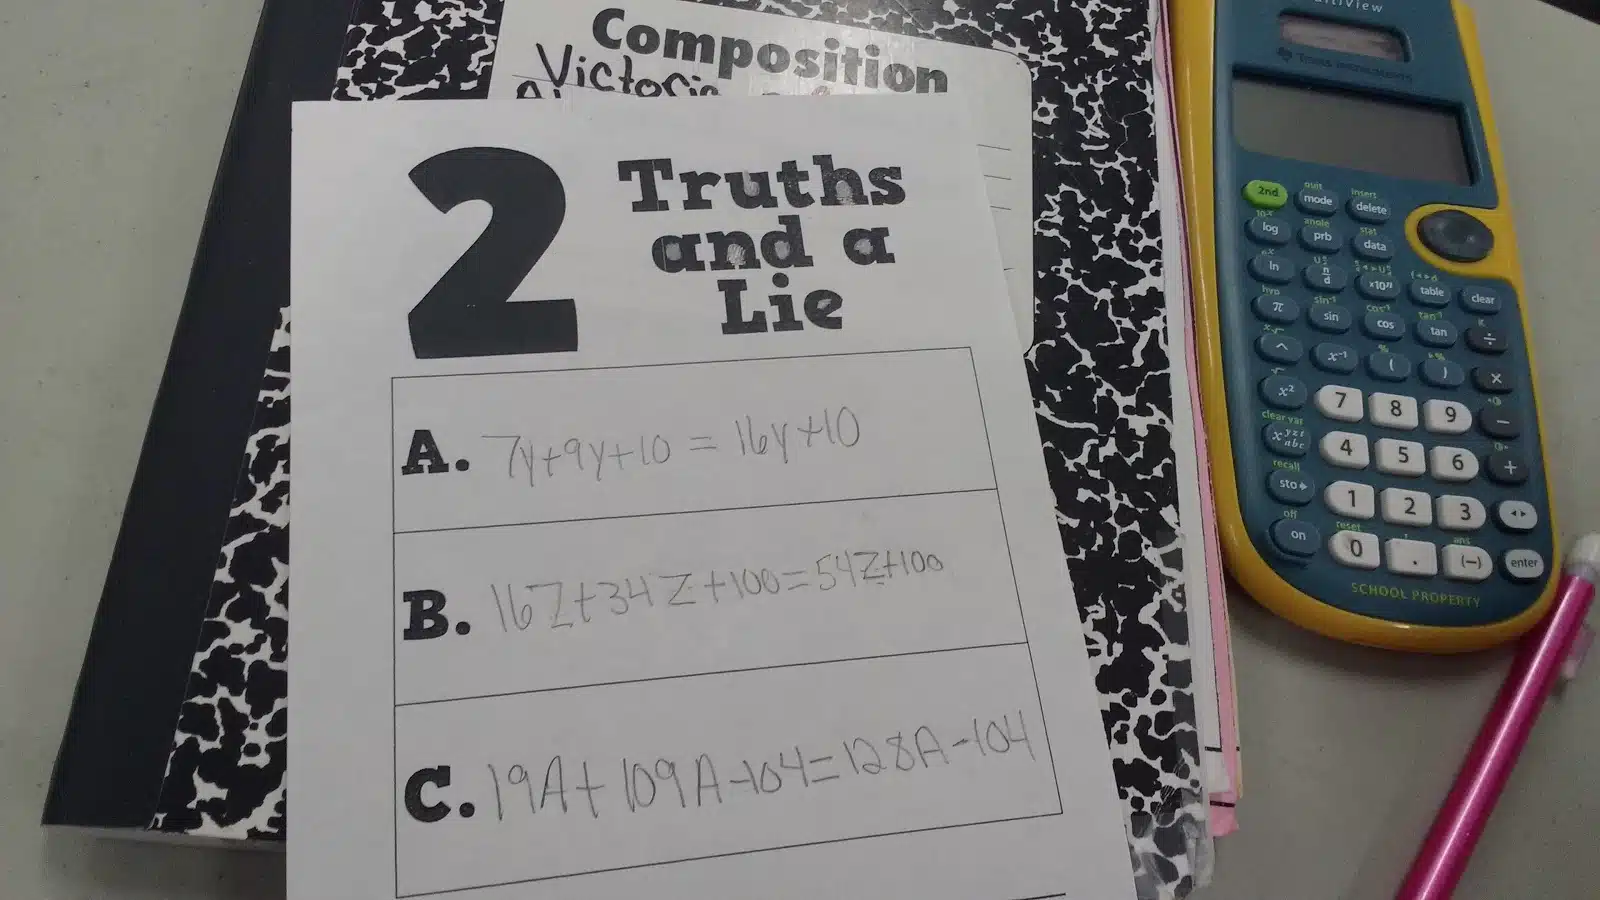 Composition
Victoria
2 Truths
and a
Lie
A. 7y+9y+10 = 16y+10
B. 16Z+34Z+100=54Z+100
C. 19A+109A-104=128A-104
TEXAS INSTRUMENTS
quit insert
2nd mode delete
10ˣ angle stat
log prb data
eˣ
ln n/d ×10ⁿ table clear
hyp sin⁻¹ cos⁻¹ tan⁻¹ K
π sin cos tan ÷
%
^ x⁻¹ ( ) ×
√
x² 7 8 9 −
clear var
x yzt abc 4 5 6 +
recall
sto▸ 1 2 3 ◂▸
off reset ans
on 0 . (−) enter
SCHOOL PROPERTY